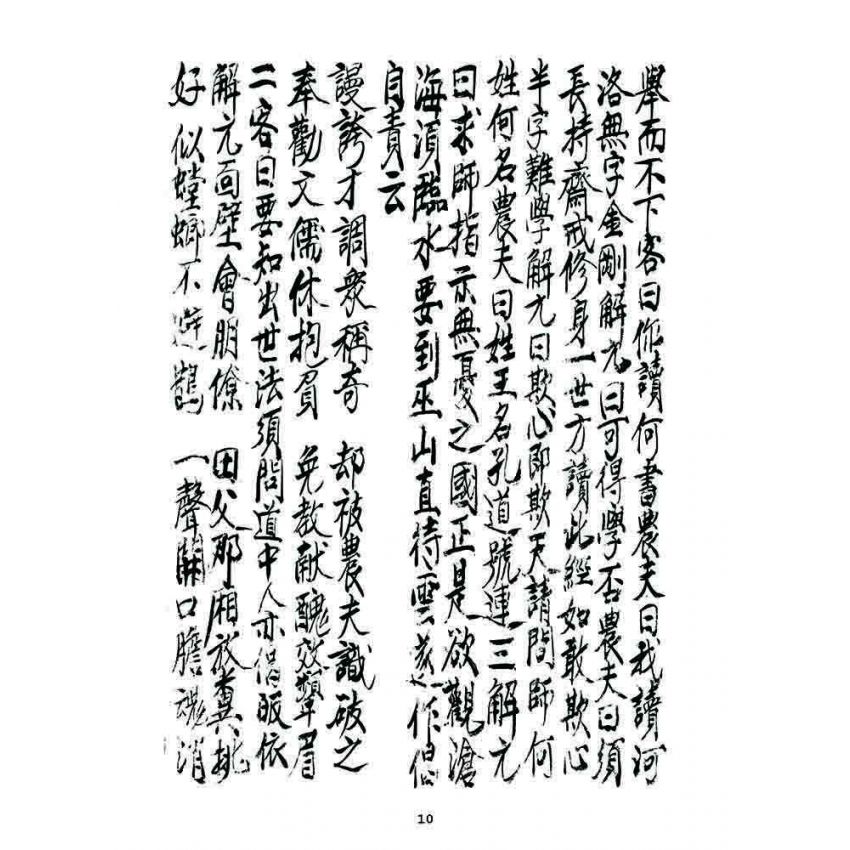 舉而不下客曰你讀何書農夫曰我讀河
洛無字金剛解元曰可得學否農夫曰須
長持齋戒修身一世方讀此經如敢欺心
半字難學解元曰欺心即欺天請問師何
姓何名農夫曰姓王名孔道號連三解元
曰求師指示無憂之國正是欲觀滄
海須臨水要到巫山直待雲遂作偈
自責云
謾誇才調眾稱奇 却被農夫識破之
奉勸文儒休抱負 免教献醜效顰眉
二客曰要知出世法須問道中人亦偈皈依
解元面壁會朋僚 田父那廂放糞挑
好似螳螂不避鶴 一聲關口膽魂消
10